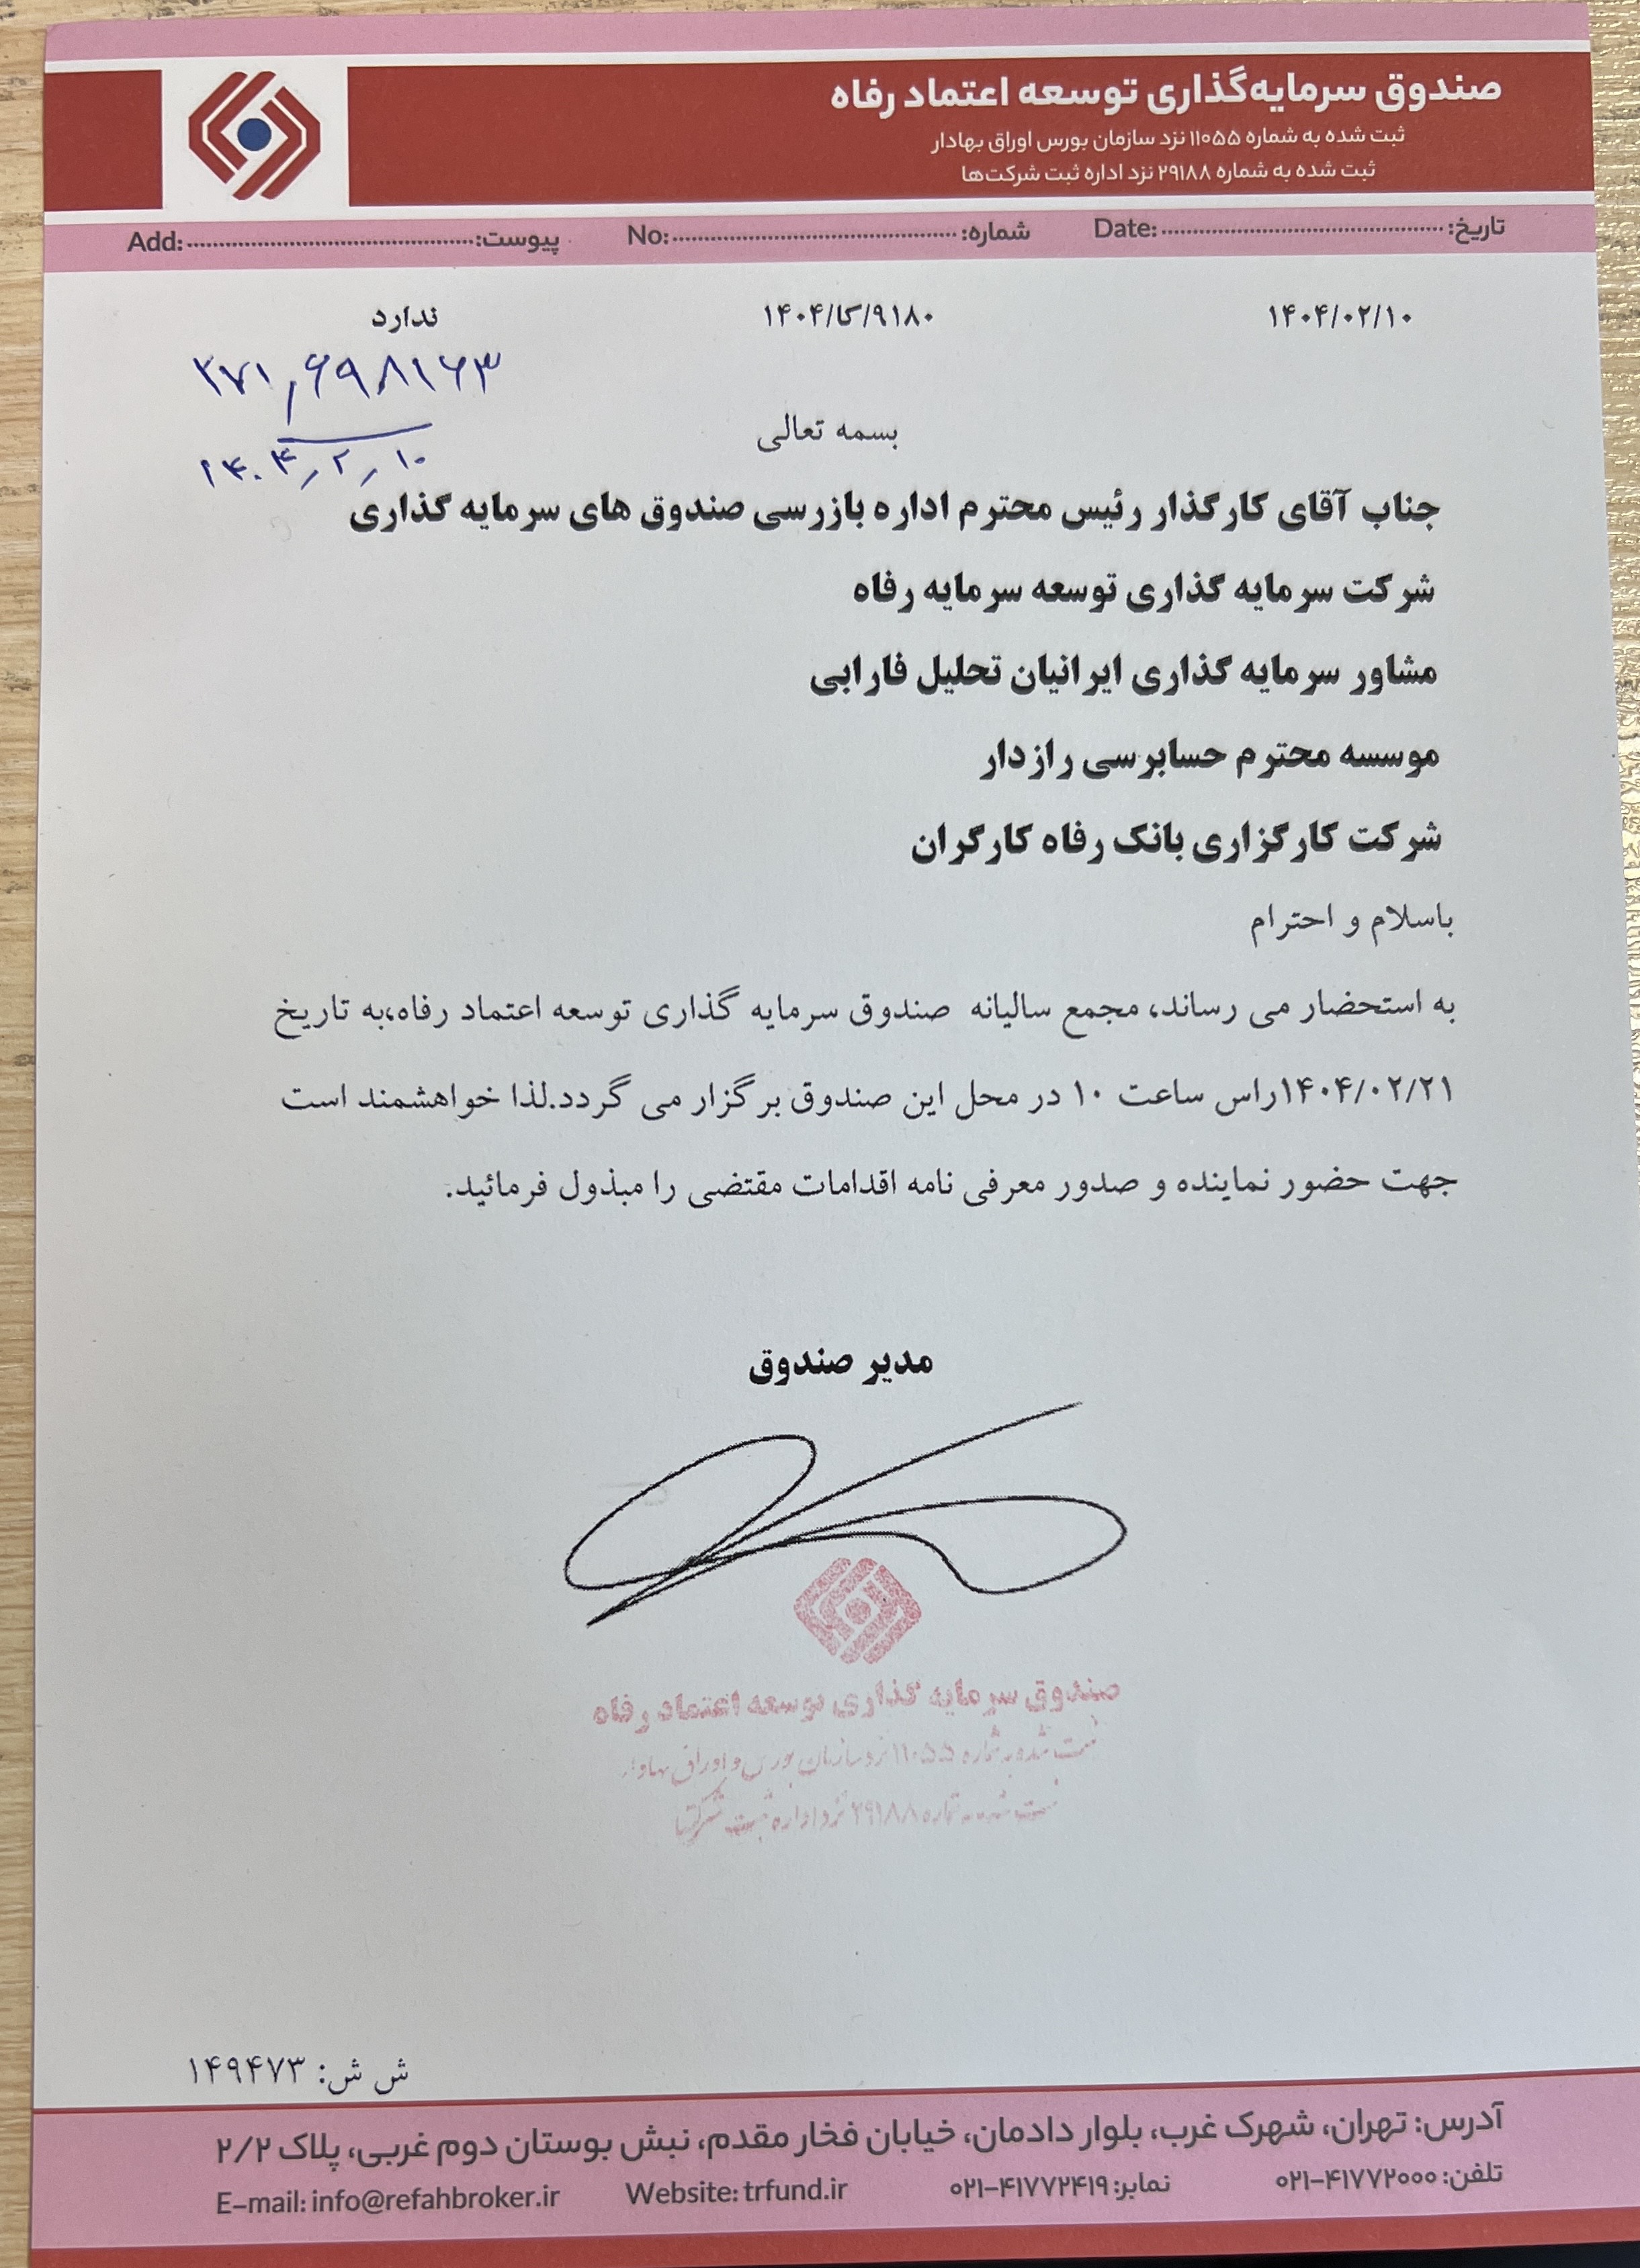 صندوق سرمایه‌گذاری توسعه اعتماد رفاه
ثبت شده به شماره ۱۱۰۵۵ نزد سازمان بورس اوراق بهادار
ثبت شده به شماره ۲۹۱۸۸ نزد اداره ثبت شرکت‌ها
تاریخ: Date: شماره: No: پیوست: Add:
۱۴۰۴/۰۲/۱۰ ۹۱۸۰/کا/۱۴۰۴ ندارد
۲۷۱,۶۹۸۱۶۳
۱۴۰۴,۲,۱۰
بسمه تعالی
جناب آقای کارگذار رئیس محترم اداره بازرسی صندوق های سرمایه گذاری
شرکت سرمایه گذاری توسعه سرمایه رفاه
مشاور سرمایه گذاری ایرانیان تحلیل فارابی
موسسه محترم حسابرسی رازدار
شرکت کارگزاری بانک رفاه کارگران
باسلام و احترام
به استحضار می رساند، مجمع سالیانه صندوق سرمایه گذاری توسعه اعتماد رفاه،به تاریخ
۱۴۰۴/۰۲/۲۱راس ساعت ۱۰ در محل این صندوق برگزار می گردد.لذا خواهشمند است
جهت حضور نماینده و صدور معرفی نامه اقدامات مقتضی را مبذول فرمائید.
مدیر صندوق
صندوق سرمایه گذاری توسعه اعتماد رفاه
ثبت شده به شماره ۱۱۰۵۵ نزد سازمان بورس و اوراق بهادار
ثبت شده به شماره ۲۹۱۸۸ نزد اداره ثبت شرکتها
ش ش: ۱۴۹۴۷۳
آدرس: تهران، شهرک غرب، بلوار دادمان، خیابان فخار مقدم، نبش بوستان دوم غربی، پلاک ۲/۲
تلفن: ۴۱۷۷۲۰۰۰-۰۲۱ نمابر: ۴۱۷۷۲۴۱۹-۰۲۱ Website: trfund.ir E-mail: info@refahbroker.ir